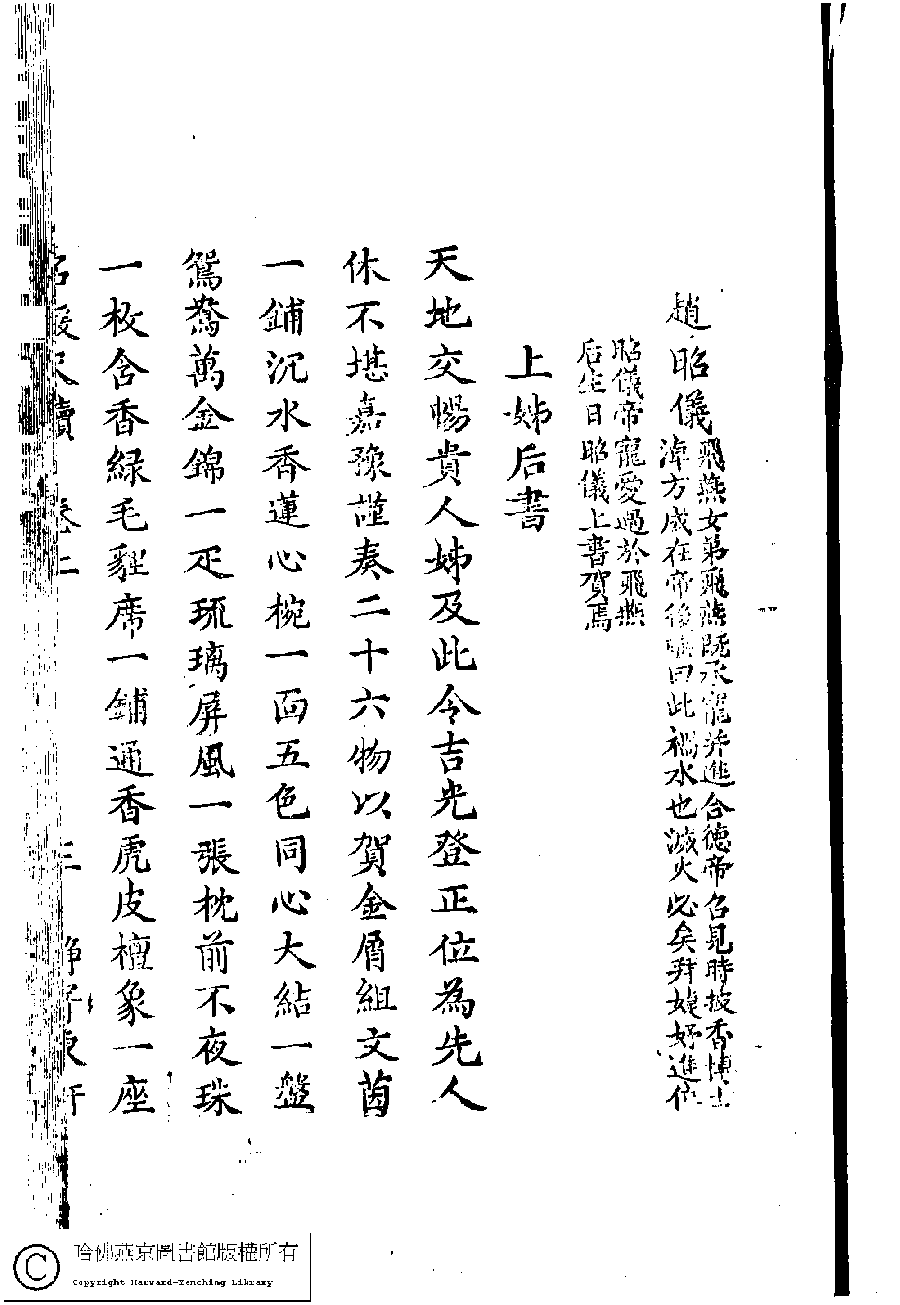 趙昭儀
飛燕女弟飛燕既承寵并進合德帝召見時披香博士
淖方成在帝後唾曰此禍水也滅火必矣拜婕妤進位
昭儀帝寵愛過於飛燕
后生日昭儀上書賀焉
上姊后書
天地交暢貴人姊及此令吉光登正位為先人
休不堪嘉豫謹奏二十六物以賀金屑組文茵
一鋪沉水香蓮心椀一面五色同心大結一盤
鴛鴦萬金錦一疋琉璃屏風一張枕前不夜珠
一枚含香綠毛貍席一鋪通香虎皮檀象一座
名媛尺牘 卷上 三 靜好
哈佛燕京圖書館版權所有
Copyright Harvard-Yenching Library